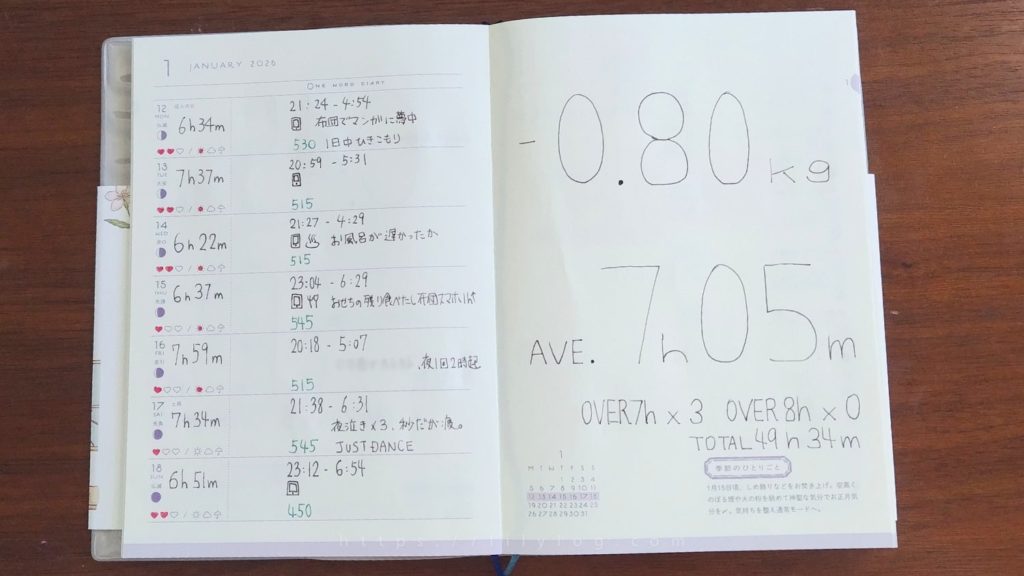 1 JANUARY 2026
ONE WORD DIARY
12 MON
6h34m
21:24 - 4:54
布団でマンガに夢中
530 1日中ひきこもり
13 TUE
7h37m
20:59 - 5:31
515
14 WED
6h22m
21:27 - 4:29
お風呂が遅かったか
515
15 THU
6h37m
23:04 - 6:29
おせちの残り食べたし布団でスマホいじ
545
16 FRI
7h59m
20:18 - 5:07
夜1回2時起
515
17 SAT
7h34m
21:38 - 6:31
夜泣き×3、秒だが疲。
545 JUST DANCE
18 SUN
6h51m
23:12 - 6:54
450
-0.80kg
AVE. 7h05m
OVER7h×3 OVER8h×0
TOTAL49h34m
1
M T W T F S S
1 2 3 4
5 6 7 8 9 10 11
12 13 14 15 16 17 18
19 20 21 22 23 24 25
26 27 28 29 30 31
季節のひとりごと
1月15日頃、しめ飾りなどをお焚き上げ。空高く
のぼる煙や火の粉を眺めて神聖な気分でお正月気
分を〆。気持ちを整え通常モードへ。